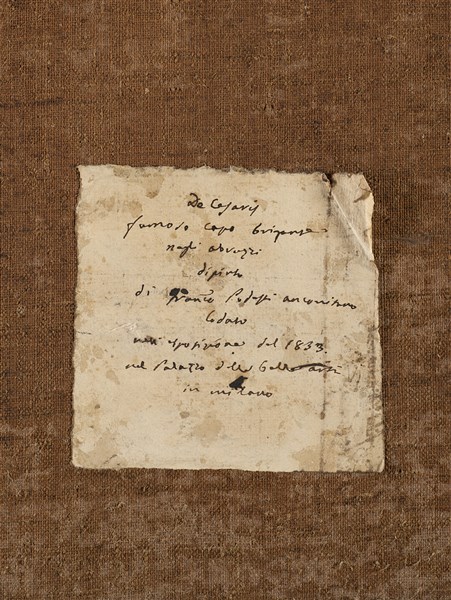 De Cesaris
famoso capo brigante
negli abruzzi
dipinto
di Franc.co Podesti anconitano
lodato
nell esposizione del 1833
nel Palazzo delle Belle arti
in milano